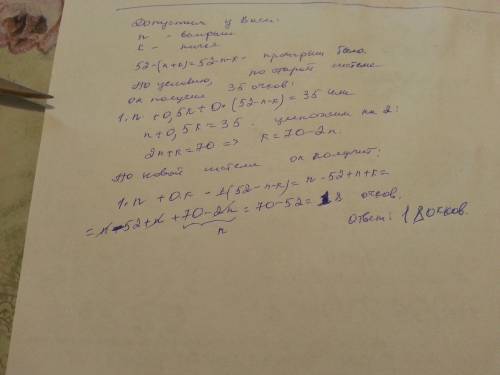 Допустим у Васи:
n - выигрыш
k - ничья
52-(n+k)=52-n-k - проигрыш было.
По условию, по старой системе
он получил 35 очков:
1·n + 0,5k + 0·(52-n-k) = 35 или
n+0,5k=35. умножим на 2:
2n+k=70 => k=70-2n.
По новой системе он получит:
1·n + 0·k - 1(52-n-k) = n-52+n+k=
= n-52+n+70-2n = 70-52= 18 очков.
n
Ответ: 18 очков.